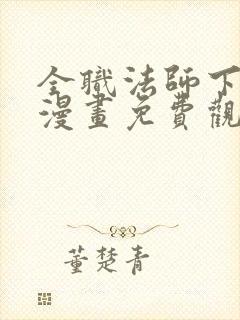 全職法師下
漫畫免費觀
董楚青